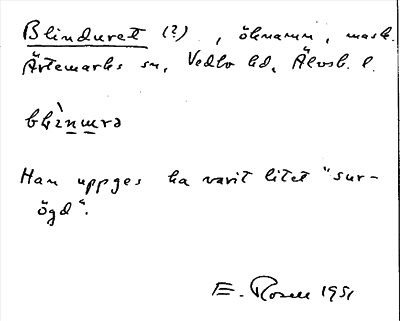 Blinduret (?), öknamn, mask.
Ärtemarks sn, Vedbo hd, Älvsb. l.
Han uppges ha varit litet "sur-
ögd".
E. Rosell 1951